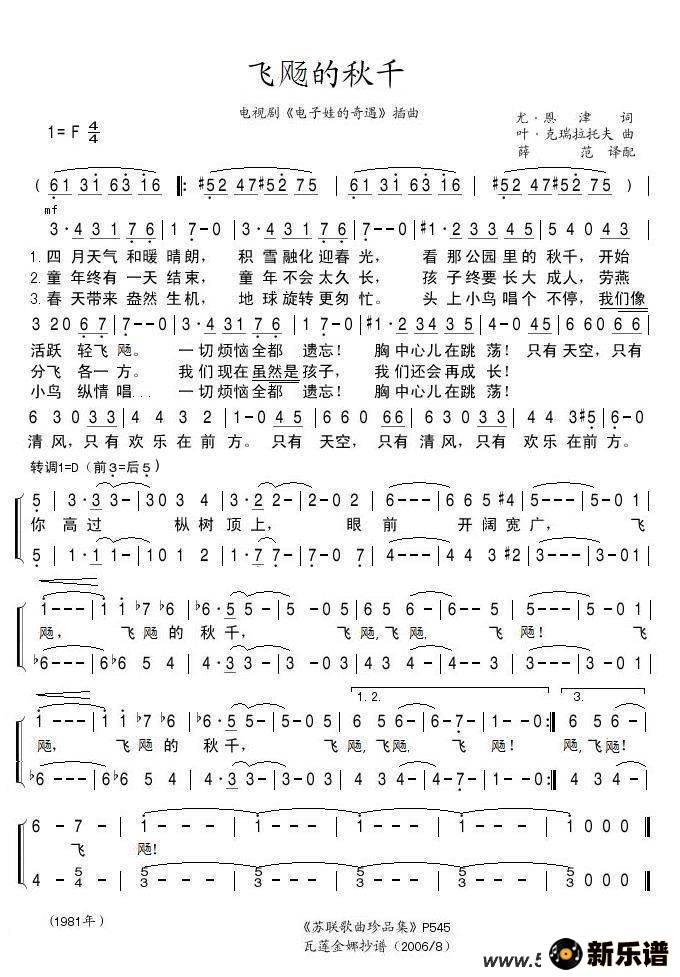 飞飏的秋千
电视剧《电子娃的奇遇》插曲
尤·恩津 词
1=F 4/4
叶·克瑞拉托夫 曲
薛范 译配
( 61 31 63 16 ‖: #52 47#52 75 | 61 31 63 16 | #52 47#52 75 )
mf
3·4 3 1 7 6 | 1 7-0 | 3·4 3 1 7 6 | 7--0 | #1·2 3 4 5 4 | 5 4-0 3 4
1.四 月天气 和暖 晴朗, 积 雪融化迎春 光, 看 那公园里的 秋千,开始
2.童 年终有 一天 结束, 童 年不会太久 长, 孩 子终要长大 成人,劳燕
3.春 天带来 盎然 生机, 地 球旋转更匆 忙。 头 上小鸟唱个 不停,我们像
3 20 6 7 | 7--0 | 3·4 3 1 7 6 | 1 7-0 | #1·2 3 4 5 4 | 5 4-0 4 5 | 6 60 0 6 6
活跃 轻飞 飏。 一切烦恼全都 遗忘! 胸中心儿在跳 荡!只有天空,只有
分飞 各一方。 我们现在虽然是 孩子, 我们还会再成 长!
小鸟 纵情 唱... 一切烦恼全都 遗忘! 胸中心儿在跳 荡!
6 30 0 3 3 | 4 4 3 2 | 1-0 4 5 | 6 60 0 6 6 | 6 30 0 3 3 | 4 4 3#5 | 6--0
清风,只有 欢乐在前 方。只有 天空,只有 清风,只有 欢乐在前方。
转调1=D(前3=后5)
5 | 3·3 3-|3 0 3 4 3 | 3·2 2-|2-0 2 | 6---|6 6 5 #4 | 5---|5-0 1
你 高过 枞树顶上, 眼 前 开阔宽广, 飞
5 | 1·1 1-|1 0 1 6 2 | 1·7 7-|7-0 7 | 4---|4 4 3 #2 | 3---|3-0 1
1---|1 1 b7 b6 | b6·5 5-|5 -0 5 | 6 5 6-|6--6 | 5---|5-0 1
飏, 飞飏的 秋千, 飞 飏,飞飏, 飞 飏! 飞
b6---|b6 b6 5 4 | 4·3 3-|3 -0 3 | 4 3 4-|4--4 | 3---|3-0 1
1. 2.
3.
1---|1 1 b7 b6 | b6·5 5-|5-0 5 | 6 5 6-|6-7-|1--0:‖ 6 5 6-
飏, 飞飏的 秋千, 飞 飏,飞飏, 飞 飏! 飞 飏,飞飏!
b6---|b6 b6 5 4 | 4·3 3-|3-0 3 | 4 3 4-|4-7-|1--0:‖ 4 3 4-
6 - 7 - | 1--- | 1--- | 1--- | 1--- | 1 0 0 0 ‖
飞 飏!
4 - 5/4 - | 5/3--- | 5/3--- | 5/3--- | 5/3--- | 5/3 0 0 0 ‖
(1981年)
《苏联歌曲珍品集》P545
瓦莲金娜抄谱(2006/8)
www.5
新乐谱